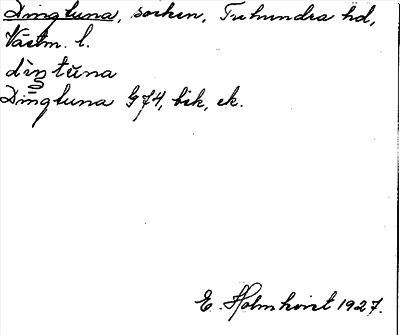 Dingtuna, socken, Tuhundra hd,
Västm. l.
dìŋtŭna
Dingtuna G74, bik, ek.
E. Holmkvist 1927.